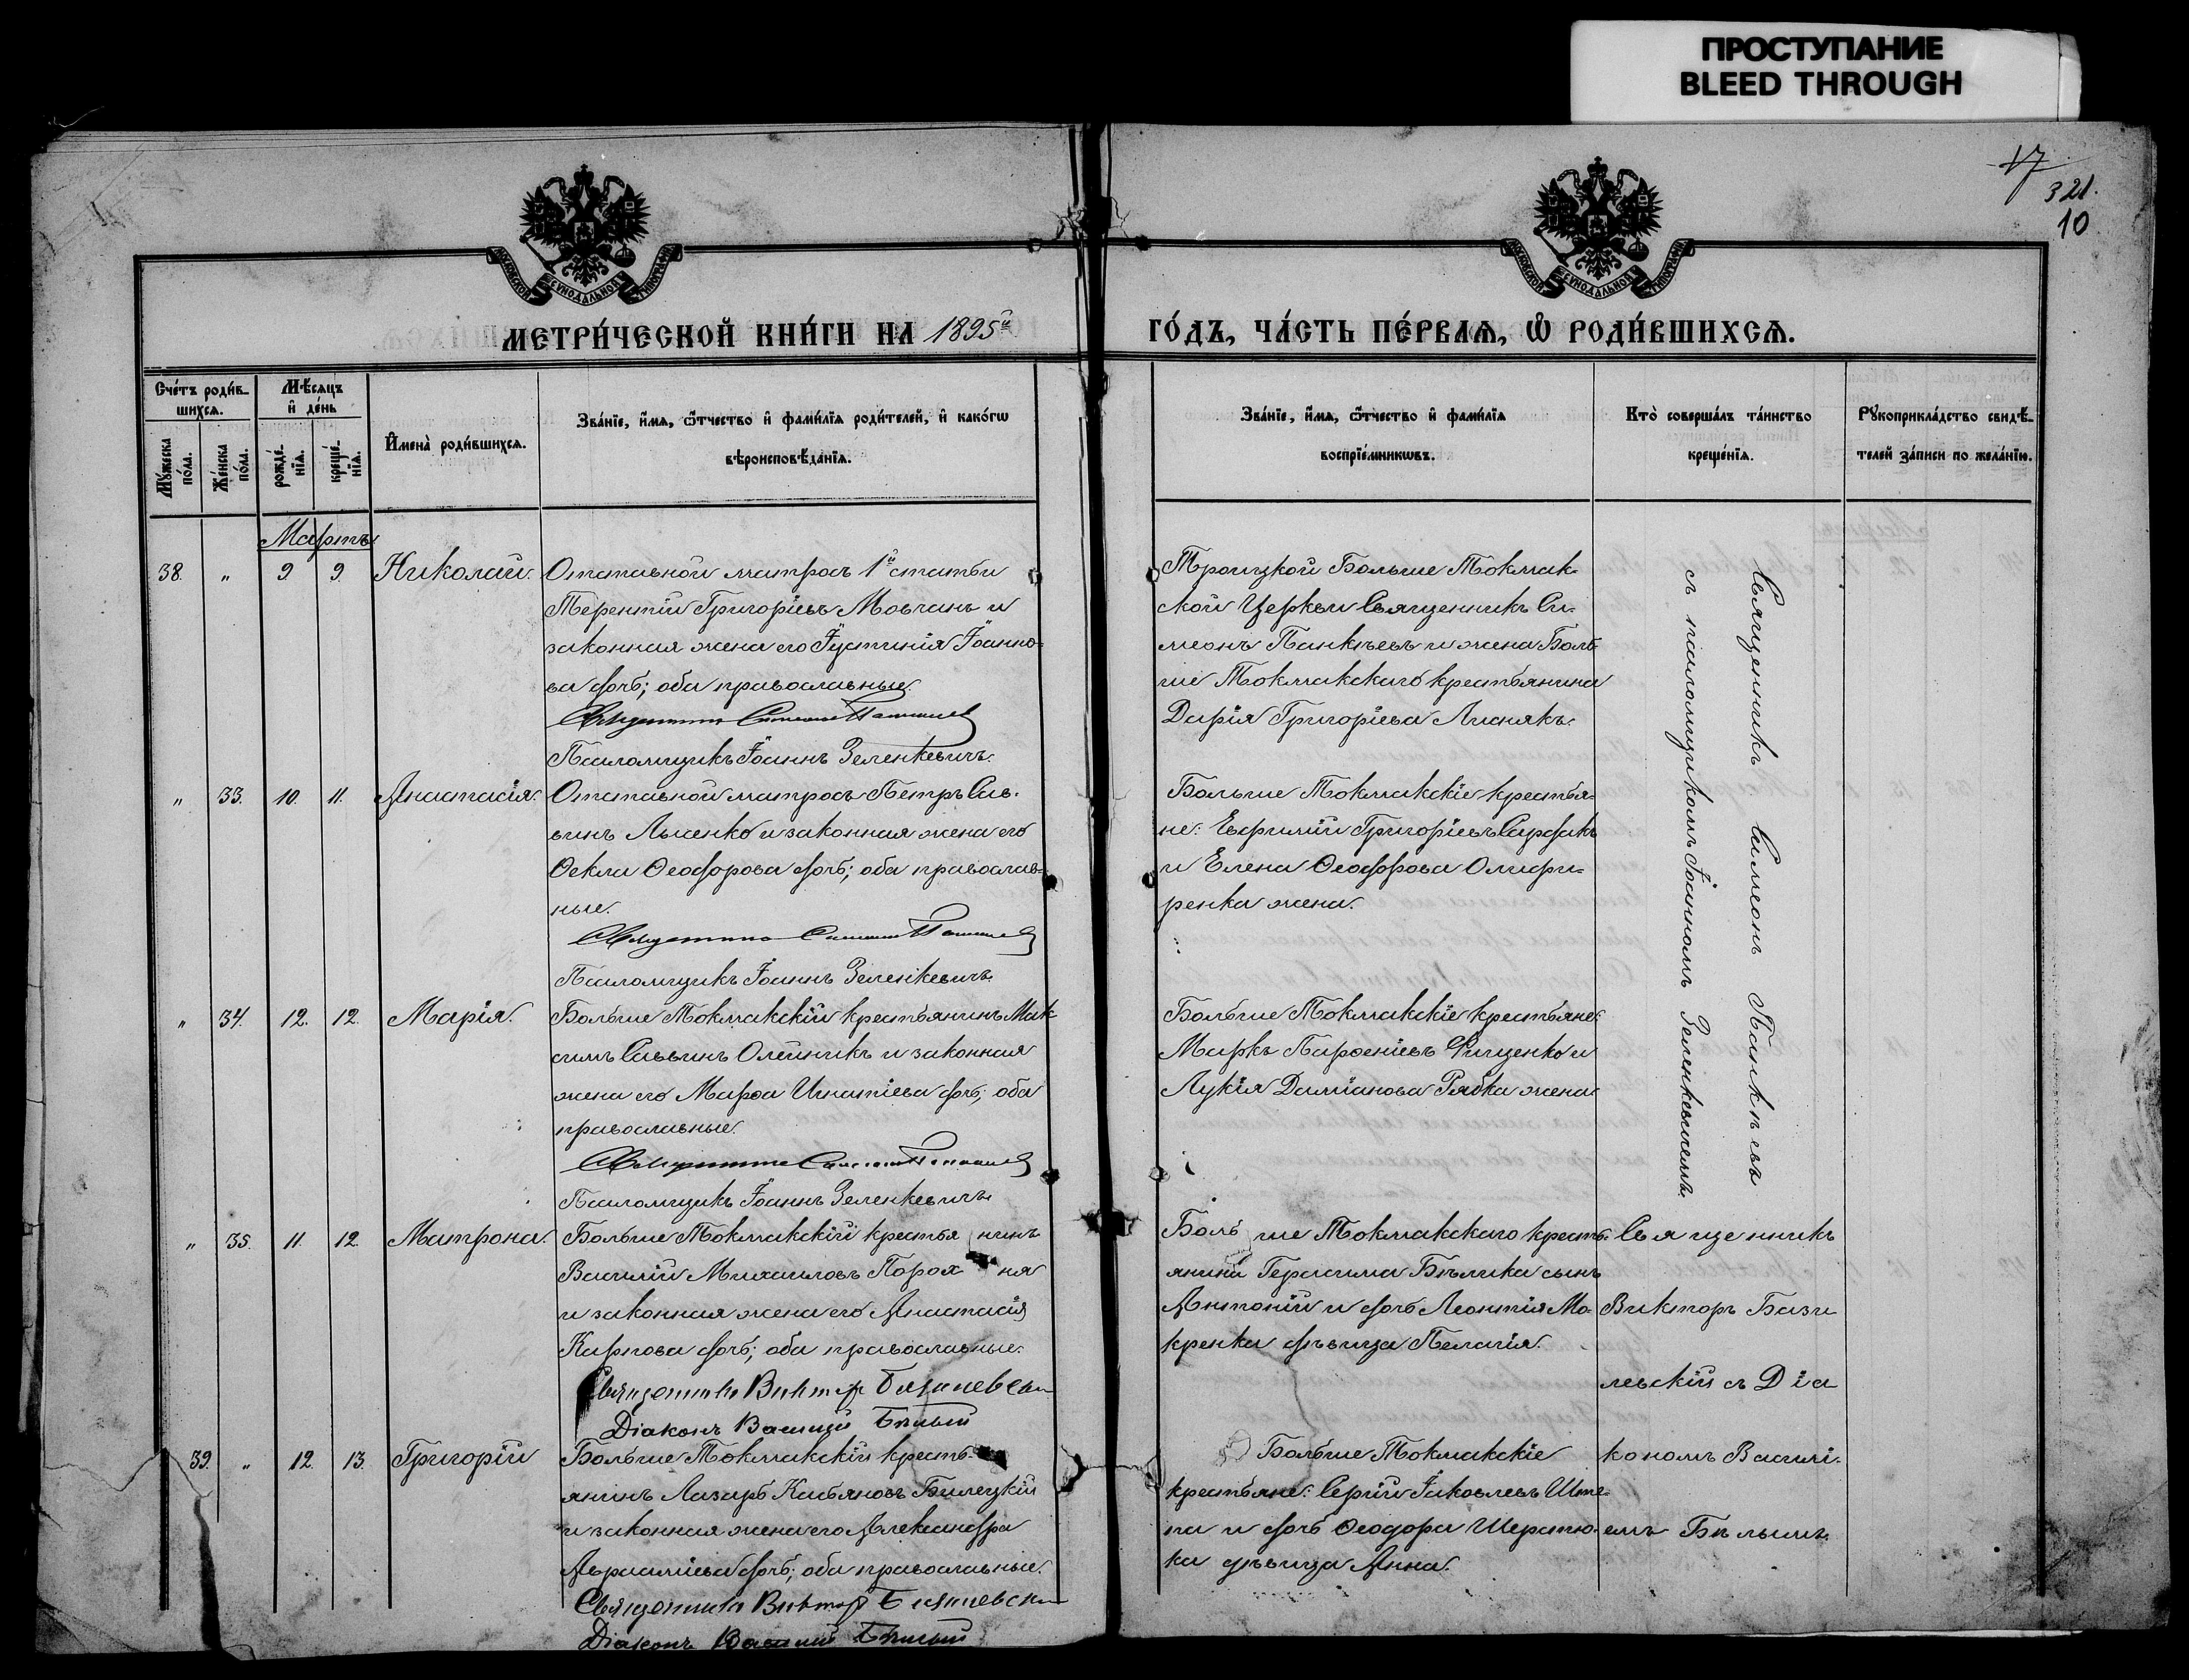 ПРОСТУПАНИЕ
BLEED THROUGH
17
321.
10
МОСКОВСКОЙ СѴНОДАЛЬНОЙ ТИПОГРАФІИ
МОСКОВСКОЙ СѴНОДАЛЬНОЙ ТИПОГРАФІИ
МЕТРИ́ЧЕСКОЙ КНИ́ГИ НА 1895й
ГО́ДЪ, ЧА́СТЬ ПЕ́РВАѦ, Ѽ РОДИ́ВШИХСѦ.
Сче́тъ роди́в-
шихсѧ.
Мꙋ́жеска
по́ла.
Же́нска
по́ла.
Мѣ́сѧцъ
и҆ де́нь
рожде́-
нїѧ.
креще́-
нїѧ.
И҆мена̀ роди́вшихсѧ.
Зва́нїе, и҆́мѧ, ѻ҆́тчество и҆ фами́лїѧ роди́телей, и҆ како́гѡ
вѣроисповѣ́данїѧ.
Зва́нїе, и҆́мѧ, ѻ҆́тчество и҆ фами́лїѧ
воспрїе́мникѡвъ.
Кто̀ соверша́лъ та́инство
креще́нїѧ.
Рꙋкоприкла́дство свидѣ́-
телей за́писи по жела́нїю.
Мартъ
38. " 9 9. Николай.
Отставной матросъ 1й статьи
Терентій Григоріевъ Мовчанъ и
законная жена его Іустинія Іоанно-
ва дочь; оба православные.
Священникъ Симеонъ Панкѣевъ
Псаломщикъ Іоаннъ Зеленкевичъ.
Троицкой Больше Токмак-
ской Церкви Священникъ Си-
меонъ Панкѣевъ и жена Боль-
ше Токмакскаго крестьянина
Дарія Григоріева Лиснякъ.
Священникъ Симеонъ Панкѣевъ
съ псаломщикомъ Іоанномъ Зеленкевичемъ.
" 33. 10. 11. Анастасія.
Отставной матросъ Петръ Сав-
винъ Лысенко и законная жена его
Ѳекла Ѳеодорова дочь; оба православ-
ные.
Священникъ Симеонъ Панкѣевъ
Псаломщикъ Іоаннъ Зеленкевичъ.
Больше Токмакскіе крестья-
не: Евфимій Григоріевъ Сардакъ
и Елена Ѳеодорова Олифи-
ренка жена.
" 34. 12. 12. Марія.
Больше Токмакскій крестьянинъ Мак-
симъ Саввинъ Олейникъ и законная
жена его Марѳа Игнатіева дочь; оба
православные.
Священникъ Симеонъ Панкѣевъ
Псаломщикъ Іоаннъ Зеленкевичъ.
Больше Токмакскіе крестьяне:
Маркъ Парѳеніевъ Фищенко и
Лукія Даміанова Рябка жена.
" 35. 11. 12. Матрона.
Больше Токмакскій крестьянинъ
Василій Михаиловъ Порохня
и законная жена его Анастасія
Карпова дочь; оба православные.
Священникъ Викторъ Базилевскій
Діаконъ Василій Бѣлый
Больше Токмакскаго кресть-
янина Герасима Бѣлика сынъ
Антоній и дочь Леонтія Мо-
кренка дѣвица Пелагія.
Священникъ
Викторъ Бази
левскій съ Діа
кономъ Василі-
емъ Бѣлымъ.
39. " 12. 13. Григорій
Больше Токмакскій кресть-
янинъ Лазарь Касьяновъ Билецкій
и законная жена его Александра
Аврааміева дочь; оба православные.
Священникъ Викторъ Базилевскій
Діаконъ Василій Бѣлый
Больше Токмакскіе
крестьяне: Сергій ІаковлевъШте-
па и дочь Ѳеодора Шерстю-
ка дѣвица Анна.